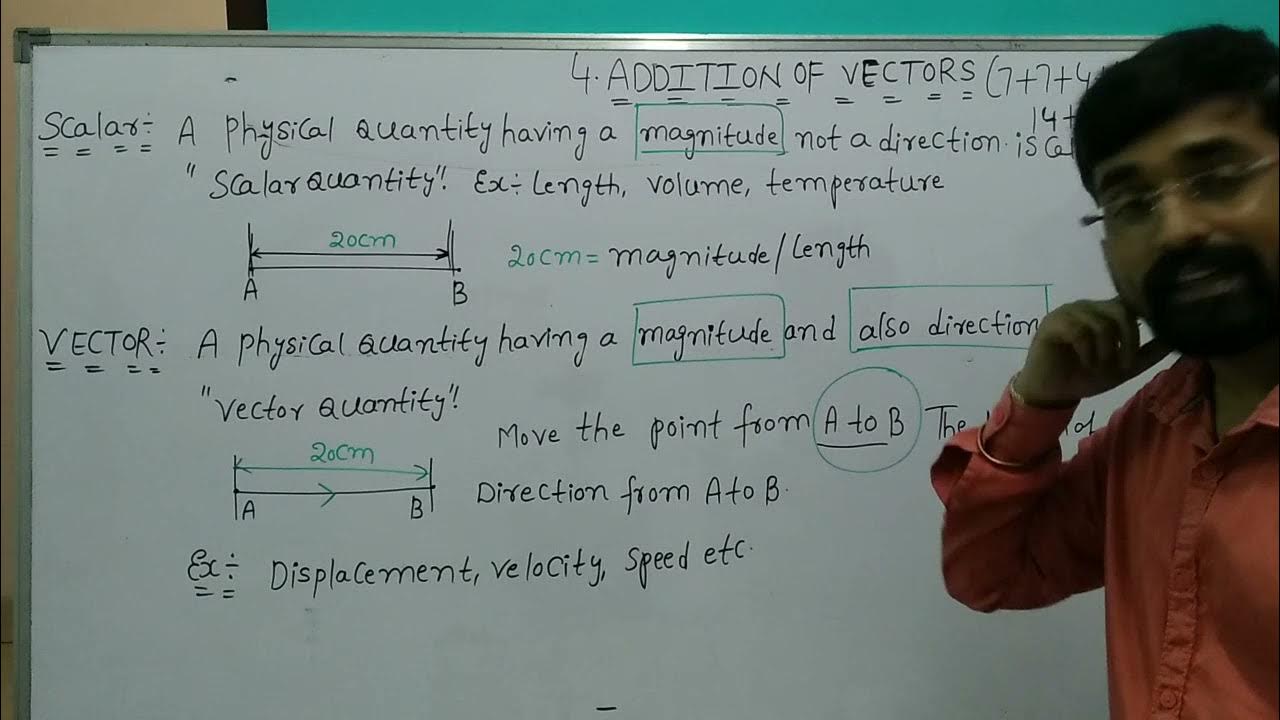 4. ADDITION OF VECTORS (7+7+4
14+
Scalar:- A Physical Quantity having a magnitude not a direction is
"Scalar Quantity". Ex:- Length, volume, temperature
20cm
20cm = magnitude/Length
A B
VECTOR:- A Physical Quantity having a magnitude and also direction
"Vector Quantity".
Move the point from A to B The
20cm
A B
Direction from A to B.
Ex:- Displacement, velocity, speed etc.